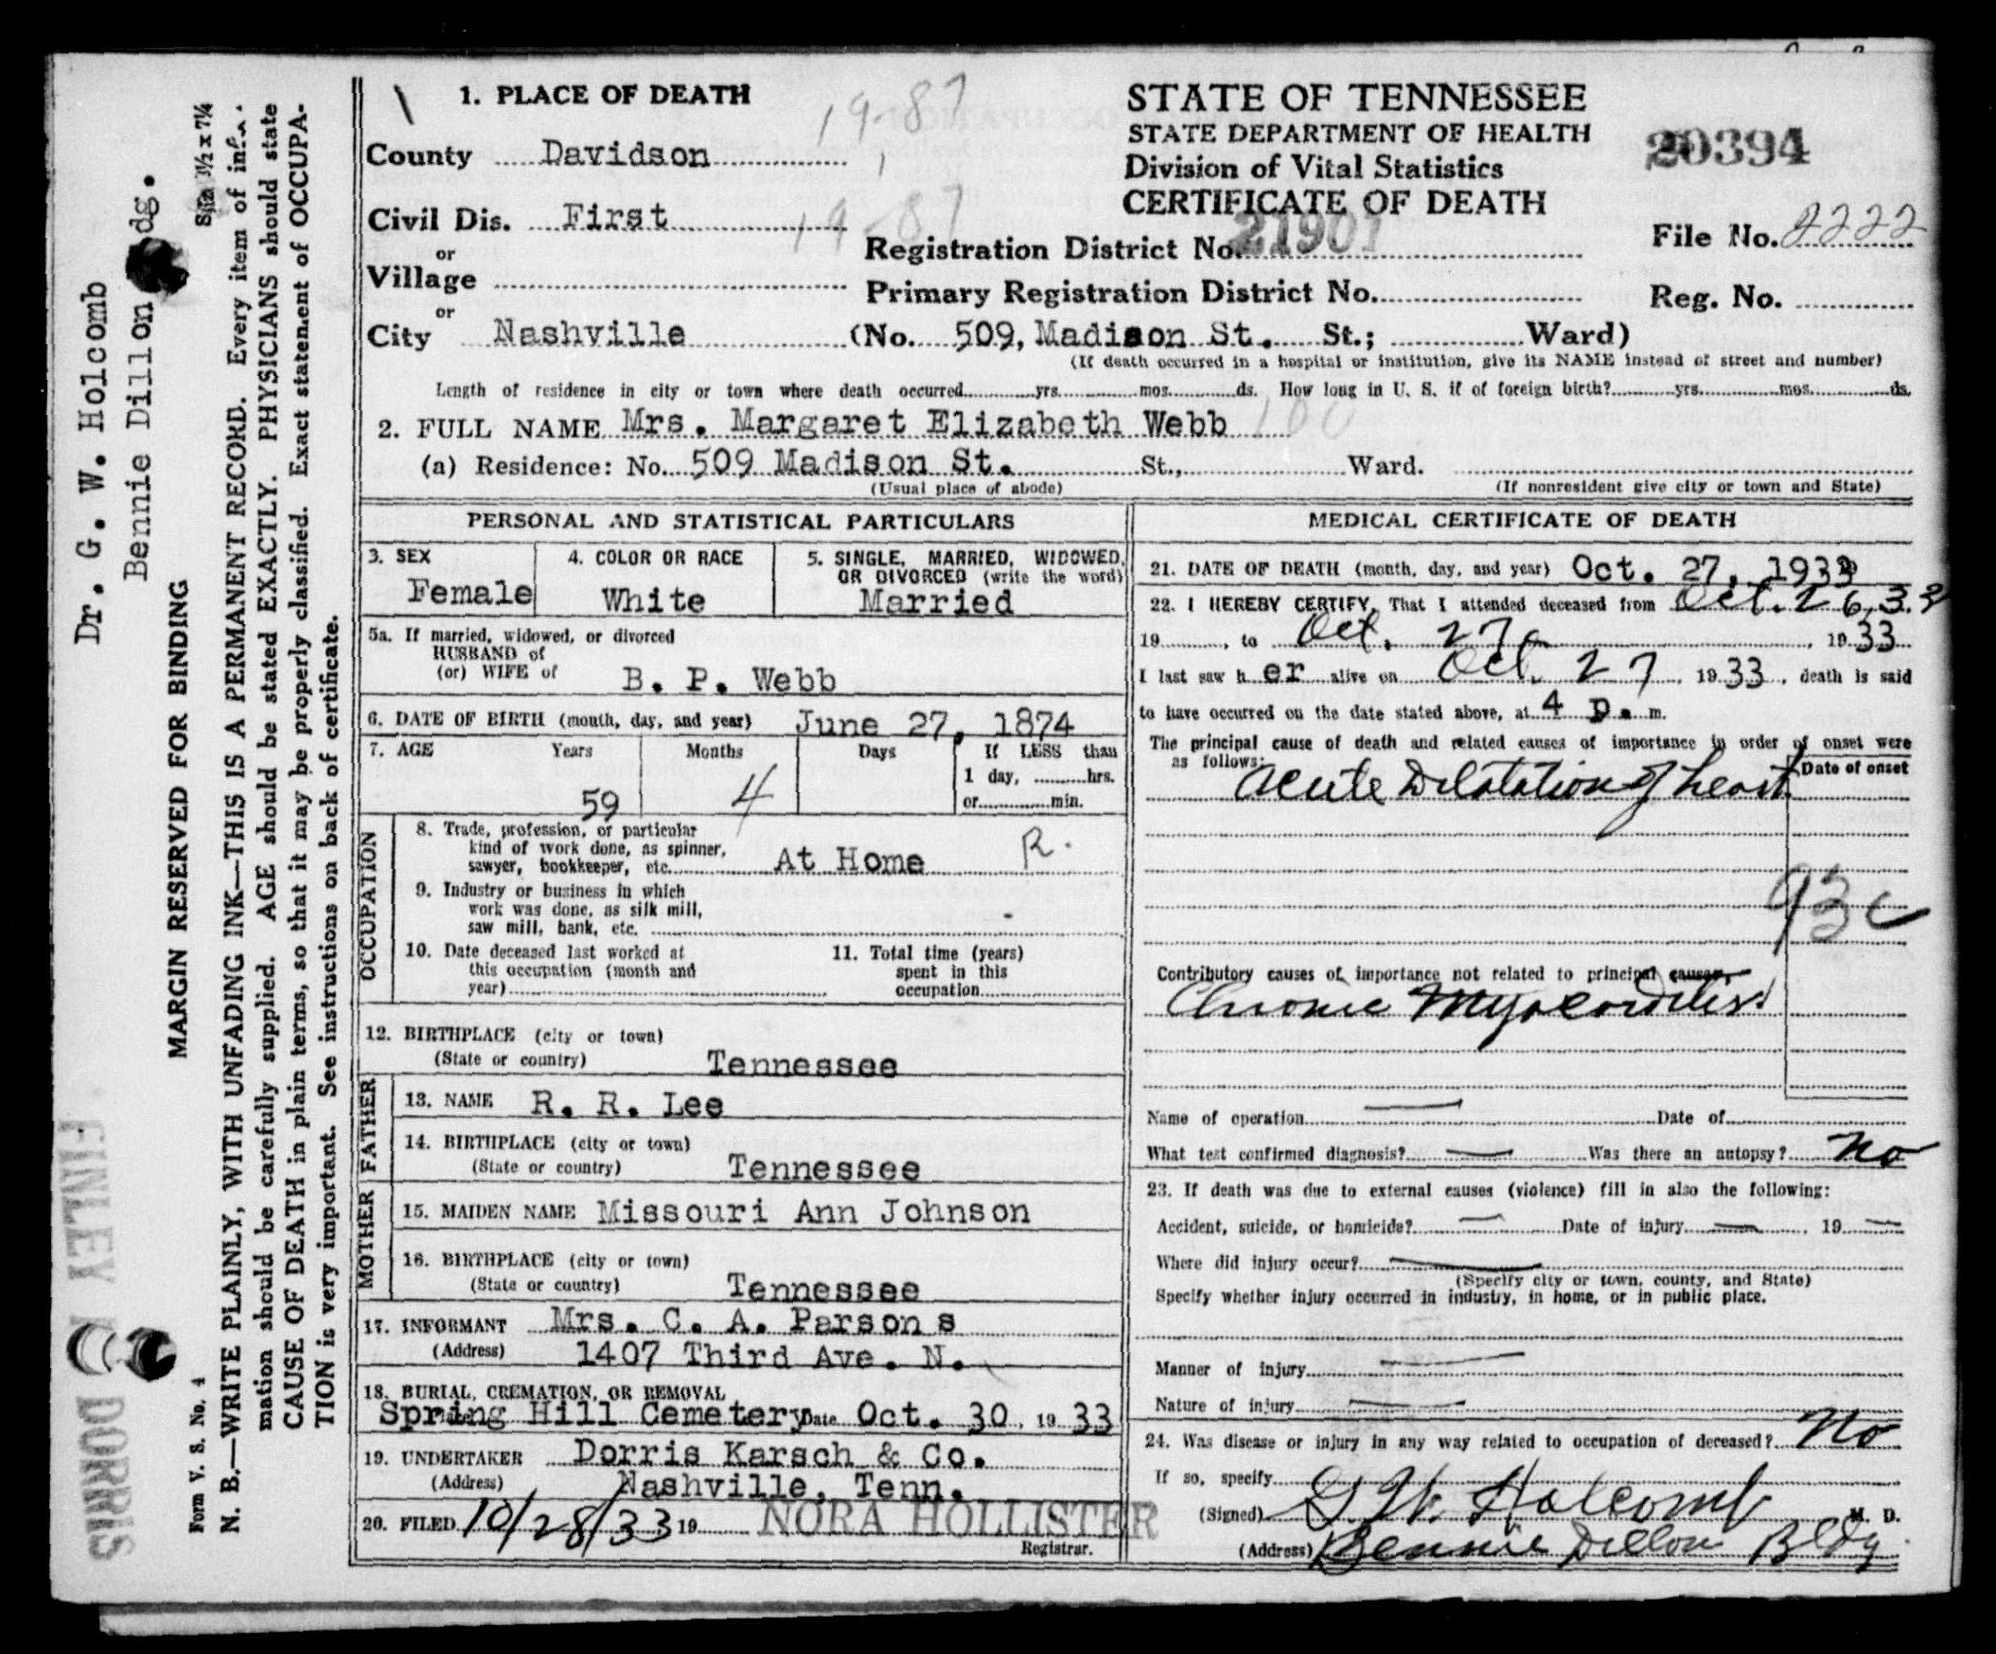 Dr. G. W. Holcomb
Bennie Dillon dg.
Size 3½ x 7¼
MARGIN RESERVED FOR BINDING
N. B.—WRITE PLAINLY, WITH UNFADING INK—THIS IS A PERMANENT RECORD. Every item of infor-
mation should be carefully supplied. AGE should be stated EXACTLY. PHYSICIANS should state
CAUSE OF DEATH in plain terms, so that it may be properly classified. Exact statement of OCCUPA-
TION is very important. See instructions on back of certificate.
Form V. S. No. 4
FINLEY M DORRIS
1. PLACE OF DEATH 19-87
County Davidson
Civil Dis. First 19-87
or
Village
or
City Nashville (No. 509, Madison St. St.; Ward)
(If death occurred in a hospital or institution, give its NAME instead of street and number)
STATE OF TENNESSEE
STATE DEPARTMENT OF HEALTH
Division of Vital Statistics
CERTIFICATE OF DEATH
20394
Registration District No. 21901
File No. 2222
Primary Registration District No.
Reg. No.
Length of residence in city or town where death occurred yrs. mos. ds. How long in U. S. if of foreign birth? yrs. mos. ds.
2. FULL NAME Mrs. Margaret Elizabeth Webb 100
(a) Residence: No. 509 Madison St. St., Ward.
(Usual place of abode) (If nonresident give city or town and State)
PERSONAL AND STATISTICAL PARTICULARS
3. SEX
Female
4. COLOR OR RACE
White
5. SINGLE, MARRIED, WIDOWED,
OR DIVORCED (write the word)
Married
5a. If married, widowed, or divorced
HUSBAND of
(or) WIFE of B. P. Webb
6. DATE OF BIRTH (month, day, and year) June 27, 1874
7. AGE Years Months Days If LESS than
1 day, hrs.
59 4 or min.
OCCUPATION
8. Trade, profession, or particular
kind of work done, as spinner,
sawyer, bookkeeper, etc. At Home R.
9. Industry or business in which
work was done, as silk mill,
saw mill, bank, etc.
10. Date deceased last worked at
this occupation (month and
year)
11. Total time (years)
spent in this
occupation
12. BIRTHPLACE (city or town)
(State or country) Tennessee
FATHER
13. NAME R. R. Lee
14. BIRTHPLACE (city or town)
(State or country) Tennessee
MOTHER
15. MAIDEN NAME Missouri Ann Johnson
16. BIRTHPLACE (city or town)
(State or country) Tennessee
17. INFORMANT Mrs. C. A. Parsons
(Address) 1407 Third Ave. N.
18. BURIAL, CREMATION, OR REMOVAL
Spring Hill Cemetery Date Oct. 30, 19 33
19. UNDERTAKER Dorris Karsch & Co.
(Address) Nashville, Tenn.
20. FILED 10/28/33 19 NORA HOLLISTER
Registrar.
MEDICAL CERTIFICATE OF DEATH
21. DATE OF DEATH (month, day, and year) Oct. 27, 1933
22. I HEREBY CERTIFY, That I attended deceased from Oct. 26, 33
19 , to Oct. 27 , 19 33
I last saw h er alive on Oct. 27 , 19 33, death is said
to have occurred on the date stated above, at 4 p. m.
The principal cause of death and related causes of importance in order of onset were
as follows: Date of onset
Acute Dilatation of heart
93c
Contributory causes of importance not related to principal cause:
Chronic Myocarditis
Name of operation — Date of
What test confirmed diagnosis? — Was there an autopsy? no
23. If death was due to external causes (violence) fill in also the following:
Accident, suicide, or homicide? — Date of injury — , 19 —
Where did injury occur? —
(Specify city or town, county, and State)
Specify whether injury occurred in industry, in home, or in public place.
Manner of injury —
Nature of injury —
24. Was disease or injury in any way related to occupation of deceased? No
If so, specify
(Signed) G. W. Holcomb M. D.
(Address) Bennie Dillon Bldg